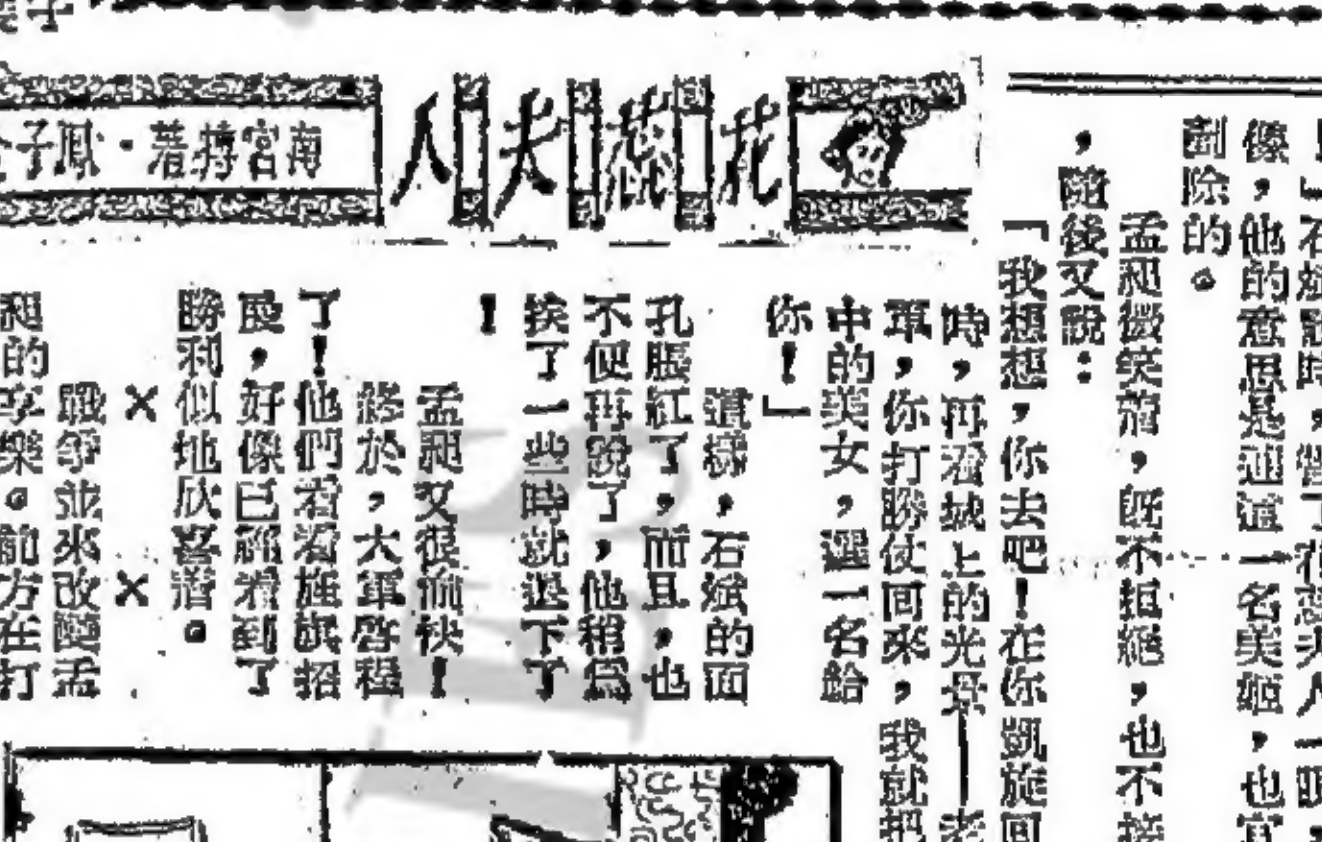 花蕊夫人
南宮搏著·鳳子
像,他的意思是連這一名美姬,也
剷除的。
孟昶微笑着,既不拒絕,也不接
,隨後又說:
「我想想,你去吧!在你凱旋回
時,再看城上的光景——老
軍,你打勝仗回來,我就把
中的美女,選一名給
你!」
這樣,石斌的面
孔脹紅了,而且,也
不便再說了,他稍爲
挨了一些時就退下了
!
孟昶又很愉快!
終於,大軍啓程
了!他們看着旌旗招
展,好像已經看到了
勝利似地欣喜着。
× ×
戰爭並未改變孟
昶的享樂。前方在打